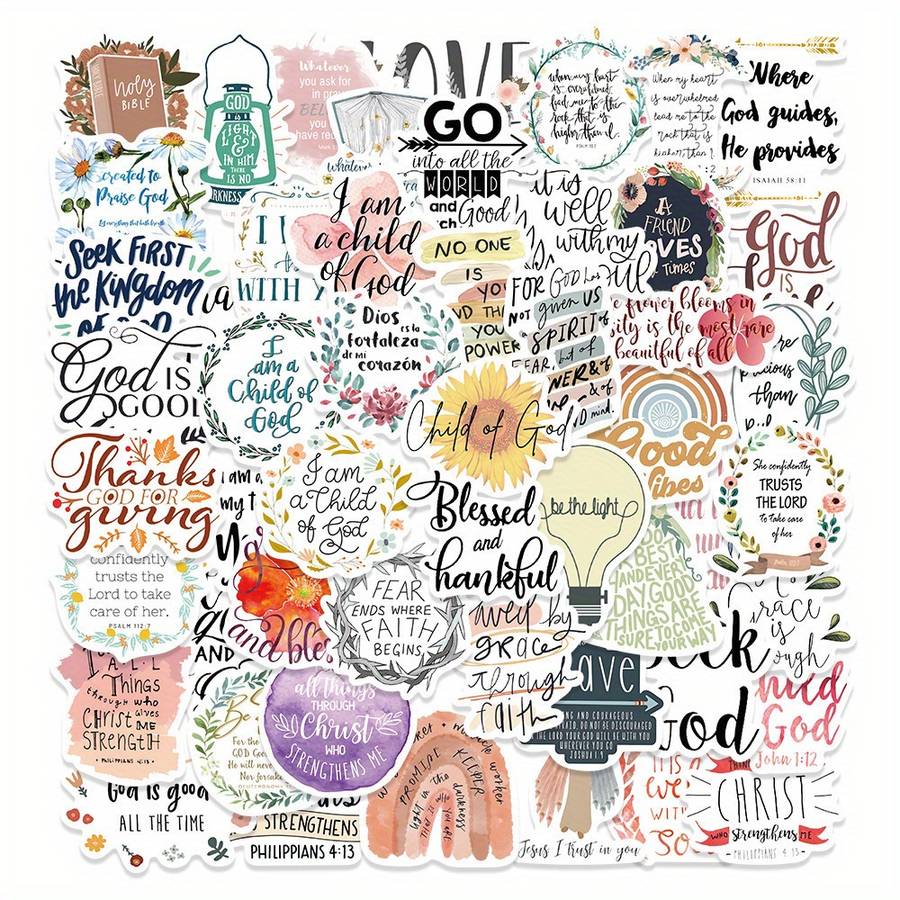 holy
BIBLE
GOD
IS
LIGHT
& IN HIM
THERE
IS NO
RKNESS
Whatever
you ask for
in pra
BEL
you
have rec
whatever
LOVE
GO
into all the
WORLD
and
ch
Good
when my heart
is overwhelmed
lead me to the
rock that is
higher than I.
PSALM 61:2
When my heart
is overwhelmed
lead me to the
rock that is
higher than I.
Where
God guides,
He provides
ISAIAH 58:11
created to
Praise God
Let everything that hath breath
I am
a child
of God
WITH
NO ONE
IS
YOU
ND TH
YOU
POWER
it is
well
with my
ul
A
FRIEND
OVES
Times
God
IS
SEEK FIRST
the KINGDOM
OF GOD
FOR GOD has
NOT given US
SPIRIT of
FEAR, but of
WER & of
& of
D mind.
e flower blooms in
sity is the most rare
beautiful of all
Dios
es la
Fortaleza
de mi
corazón
God IS
GOOD
I
am a
Child of
God
re
cious
than
Child of God
Good
Vibes
Thanks
GOD FOR
giving
I am
my t
I am
a Child
of God
Blessed
and
thankful
be the light
She confidently
TRUSTS
THE LORD
to take care
of her
Psalm 112:7
confidently
trusts the
Lord to take
care of her.
PSALM 112:7
AND
FEAR
ENDS WHERE
FAITH
BEGINS
DO
BEST
AND EVER
DAY GOOD
THINGS ARE
SURE TO COME
YOUR WAY
aved by
grace
through
faith
ave
NG AND COURAGEOUS
D DO NOT BE DISCOURAGED
E LORD YOUR GOD WILL BE WITH YOU
WHEREVER YOU GO
JOSHUA 1:9
eek
God
race
is
ough
God
John 1:12
ALL
THINGS
through who
CHRIST Gives
ME
STRENGTH
PHILIPPIANS 4:13
Be
For the
GOD
He will neve
Nor forsake
DEUTERONOMY
all things
THROUGH
Christ
WHO
STRENGTHENS ME
God is good
ALL THE TIME
STRENGTHENS
PHILIPPIANS 4:13
worker
PROMISE KEEPER
light in the darkness
that is who you are
Jesus I trust in you
CHRIST
WHO strengthens ME
PHILIPPIANS 4:13